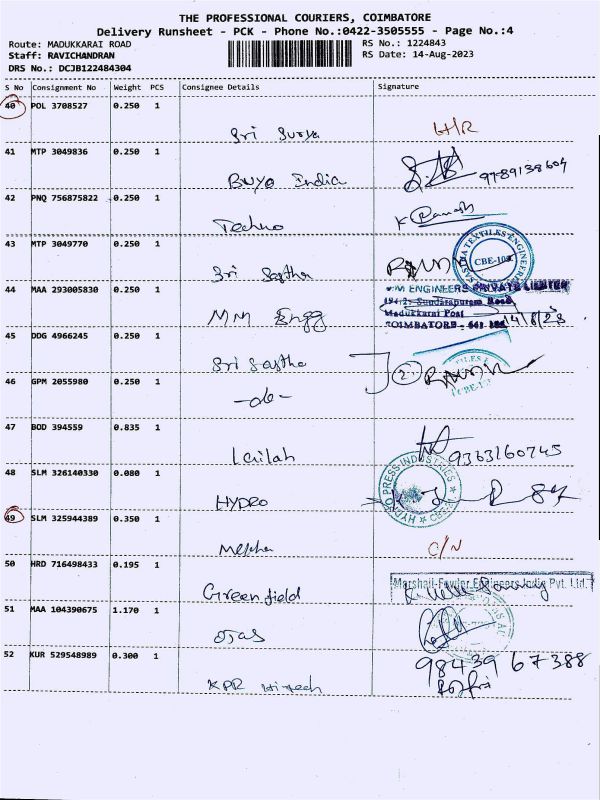 THE PROFESSIONAL COURIERS, COIMBATORE
Delivery Runsheet - PCK - Phone No.:0422-3505555 - Page No.:4
Route: MADUKKARAI ROAD RS No.: 1224843
Staff: RAVICHANDRAN RS Date: 14-Aug-2023
DRS No.: DCJB122484304
S No Consignment No Weight PCS Consignee Details Signature
40 POL 3708527 0.250 1
Sri Surya
41 MTP 3049836 0.250 1
India 9789138604
42 PNQ 756875822 0.250 1
Techno K Ramesh
43 MTP 3049770 0.250 1
Sri Sastha
SASTHA TEXTILES ENGINEERS CBE-103
44 MAA 293005830 0.250 1
MM Engg
M ENGINEERS PRIVATE LIMITED
Sundarapuram Road
Madukkarai Post
COIMBATORE - 641 14/8/23
45 DDG 4966245 0.250 1
Sri Sastha
46 GPM 2055980 0.250 1
-do- 2
47 BOD 394559 0.835 1
Lailah 9363160745
48 SLM 326140330 0.080 1
HYDRO
HYDRO PRESS INDUSTRIES
49 SLM 325944389 0.350 1
50 HRD 716498433 0.195 1
Greenfield
Marshall-Fowler Engineers India Pvt. Ltd.
51 MAA 104390675 1.170 1
Ojas
52 KUR 529548989 0.300 1
KPR Hitech
98439 67388